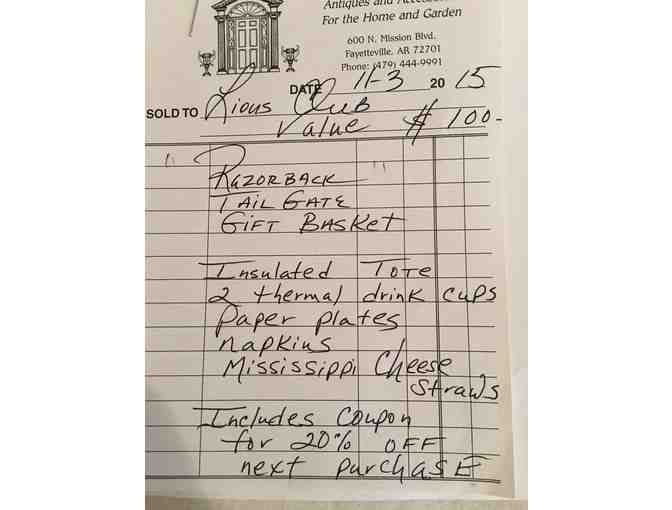 Antiques and
For the Home and Garden
600 N. Mission Blvd.
Fayetteville, AR 72701
Phone: (479) 444-9991
DATE 11-3 20 15
SOLD TO Lions Club
Value $ 100-
" Razorback "
Tail Gate
Gift Basket
Insulated Tote
2 thermal drink cups
paper plates
napkins
Mississippi Cheese
Straws
Includes Coupon
for 20% OFF
next purchase